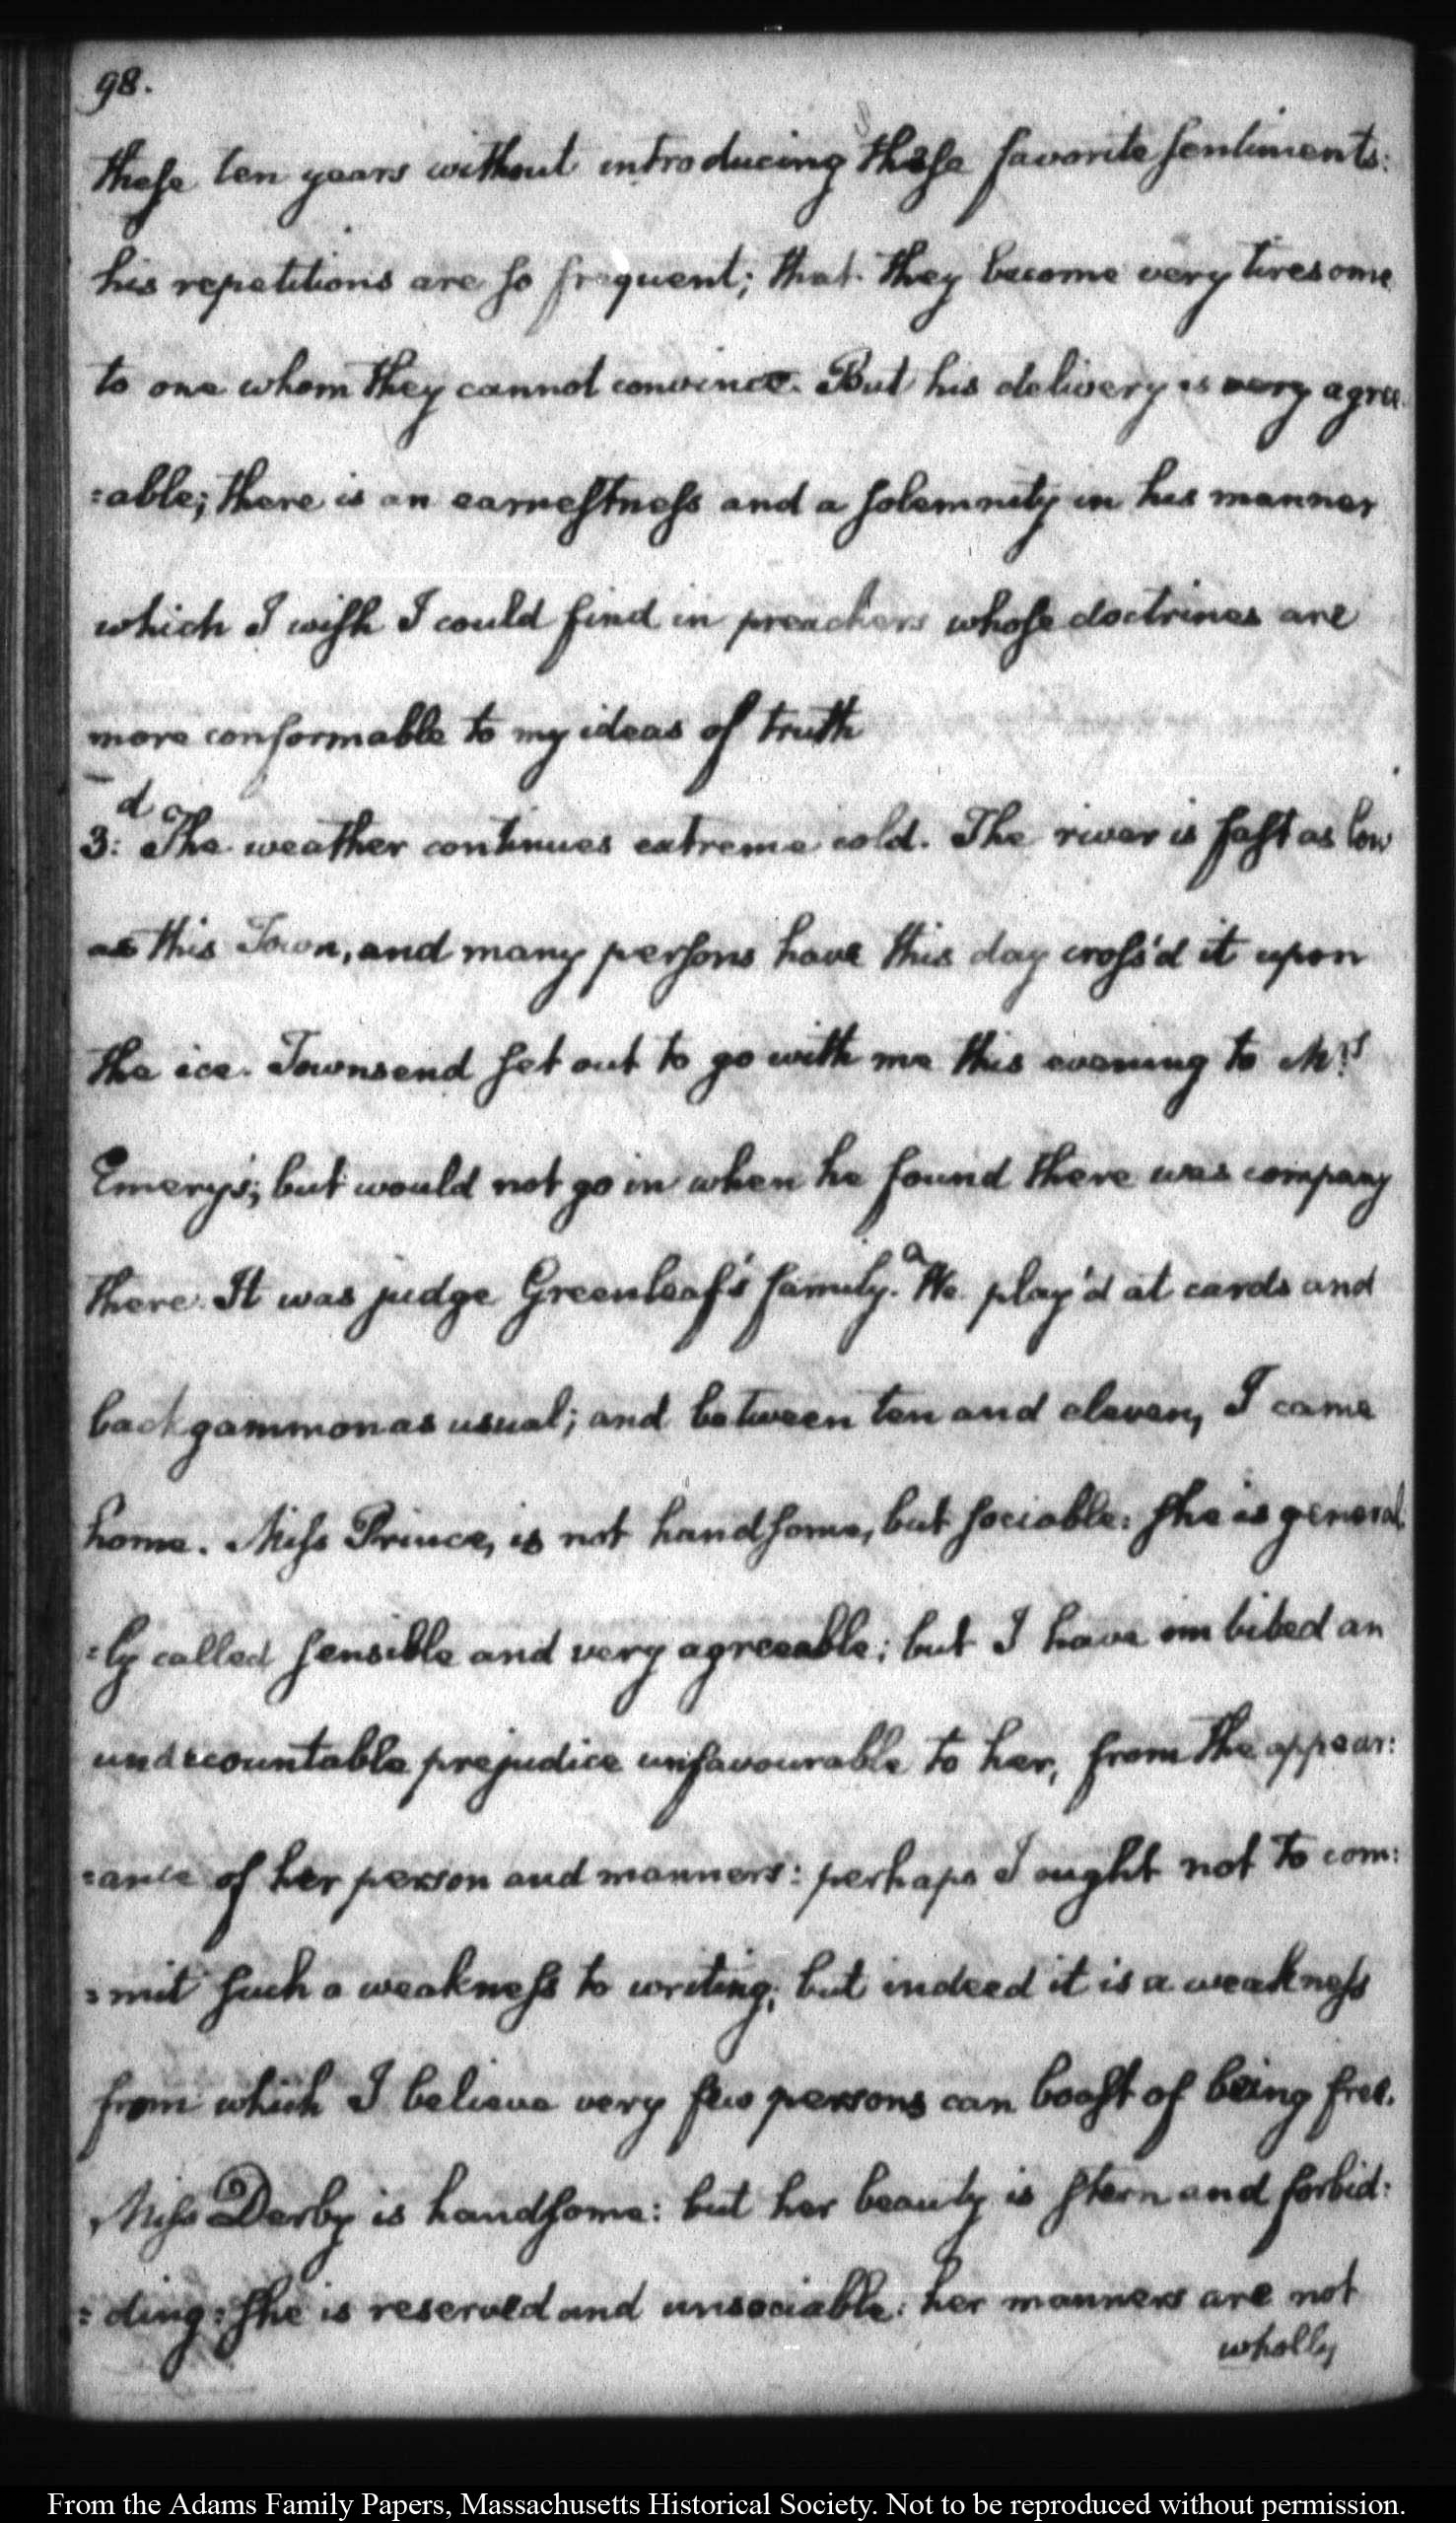 98.
these ten years without introducing those favorite sentiments:
his repetitions are so frequent; that they become very tiresome
to one whom they cannot convince. But his delivery is very agree
=able; there is an earnestness and a solemnity in his manner
which I wish I could find in preachers whose doctrines are
more conformable to my ideas of truth
3:d The weather continues extreme cold. The river is fast as low
as this Town, and many persons have this day cross'd it upon
the ice. Townsend set out to go with me this evening to Mrs
Emery's; but would not go in when he found there was company
there. It was judge Greenleaf's family.a We play'd at cards and
backgammon as usual; and between ten and eleven, I came
home. Miss Prince, is not handsome, but sociable: she is general
=ly called sensible and very agreeable: but I have imbibed an
unaccountable prejudice unfavourable to her, from the appear:
=ance of her person and manners: perhaps I ought not to com:
=mit such a weakness to writing; but indeed it is a weakness
from which I believe very few persons can boast of being free.
Miss Derby is handsome: but her beauty is stern and forbid:
=ding: she is reserved and unsociable: her manners are not
wholly
From the Adams Family Papers, Massachusetts Historical Society. Not to be reproduced without permission.